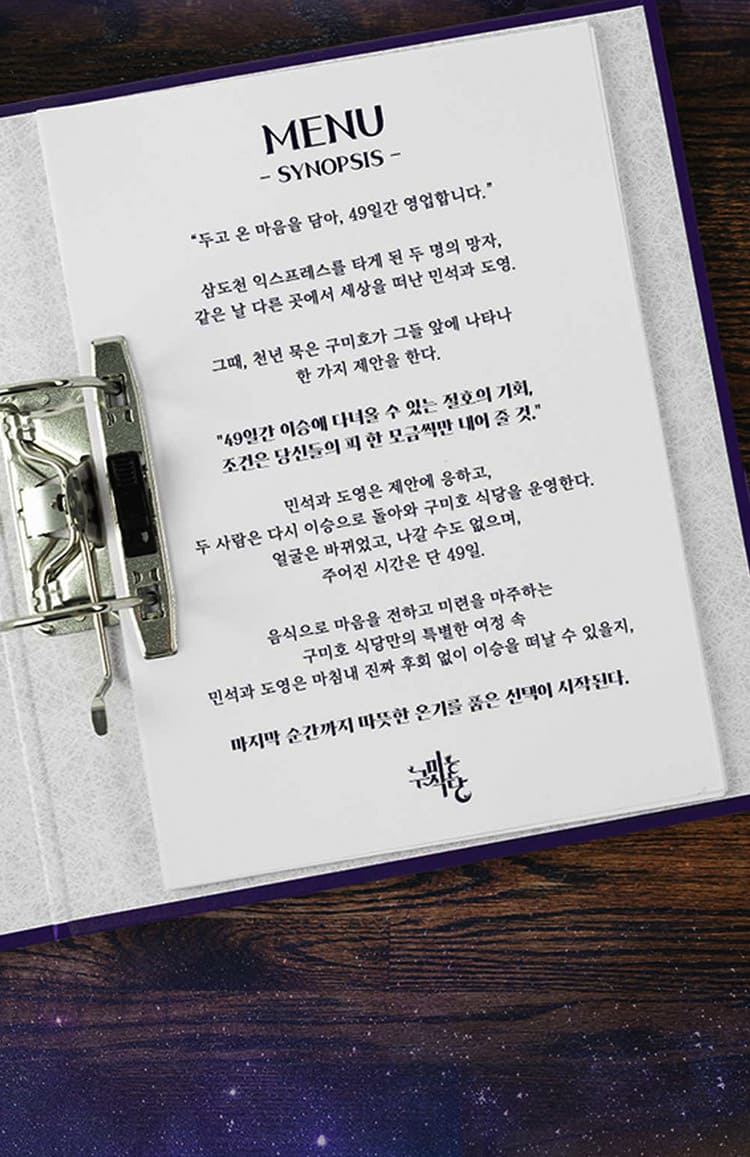 MENU
- SYNOPSIS -
“두고 온 마음을 담아, 49일간 영업합니다.”
삼도천 익스프레스를 타게 된 두 명의 망자,
같은 날 다른 곳에서 세상을 떠난 민석과 도영.
그때, 천년 묵은 구미호가 그들 앞에 나타나
한 가지 제안을 한다.
"49일간 이승에 다녀올 수 있는 절호의 기회,
조건은 당신들의 피 한 모금씩만 내어 줄 것."
민석과 도영은 제안에 응하고,
두 사람은 다시 이승으로 돌아와 구미호 식당을 운영한다.
얼굴은 바뀌었고, 나갈 수도 없으며,
주어진 시간은 단 49일.
음식으로 마음을 전하고 미련을 마주하는
구미호 식당만의 특별한 여정 속
민석과 도영은 마침내 진짜 후회 없이 이승을 떠날 수 있을지,
마지막 순간까지 따뜻한 온기를 품은 선택이 시작된다.
구미호
식당